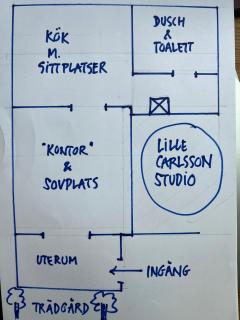 KÖK
M.
SITTPLATSER
DUSCH
&
TOALETT
"KONTOR"
&
SOVPLATS
LILLE
CARLSSON
STUDIO
UTERUM
INGÅNG
TRÄDGÅRD